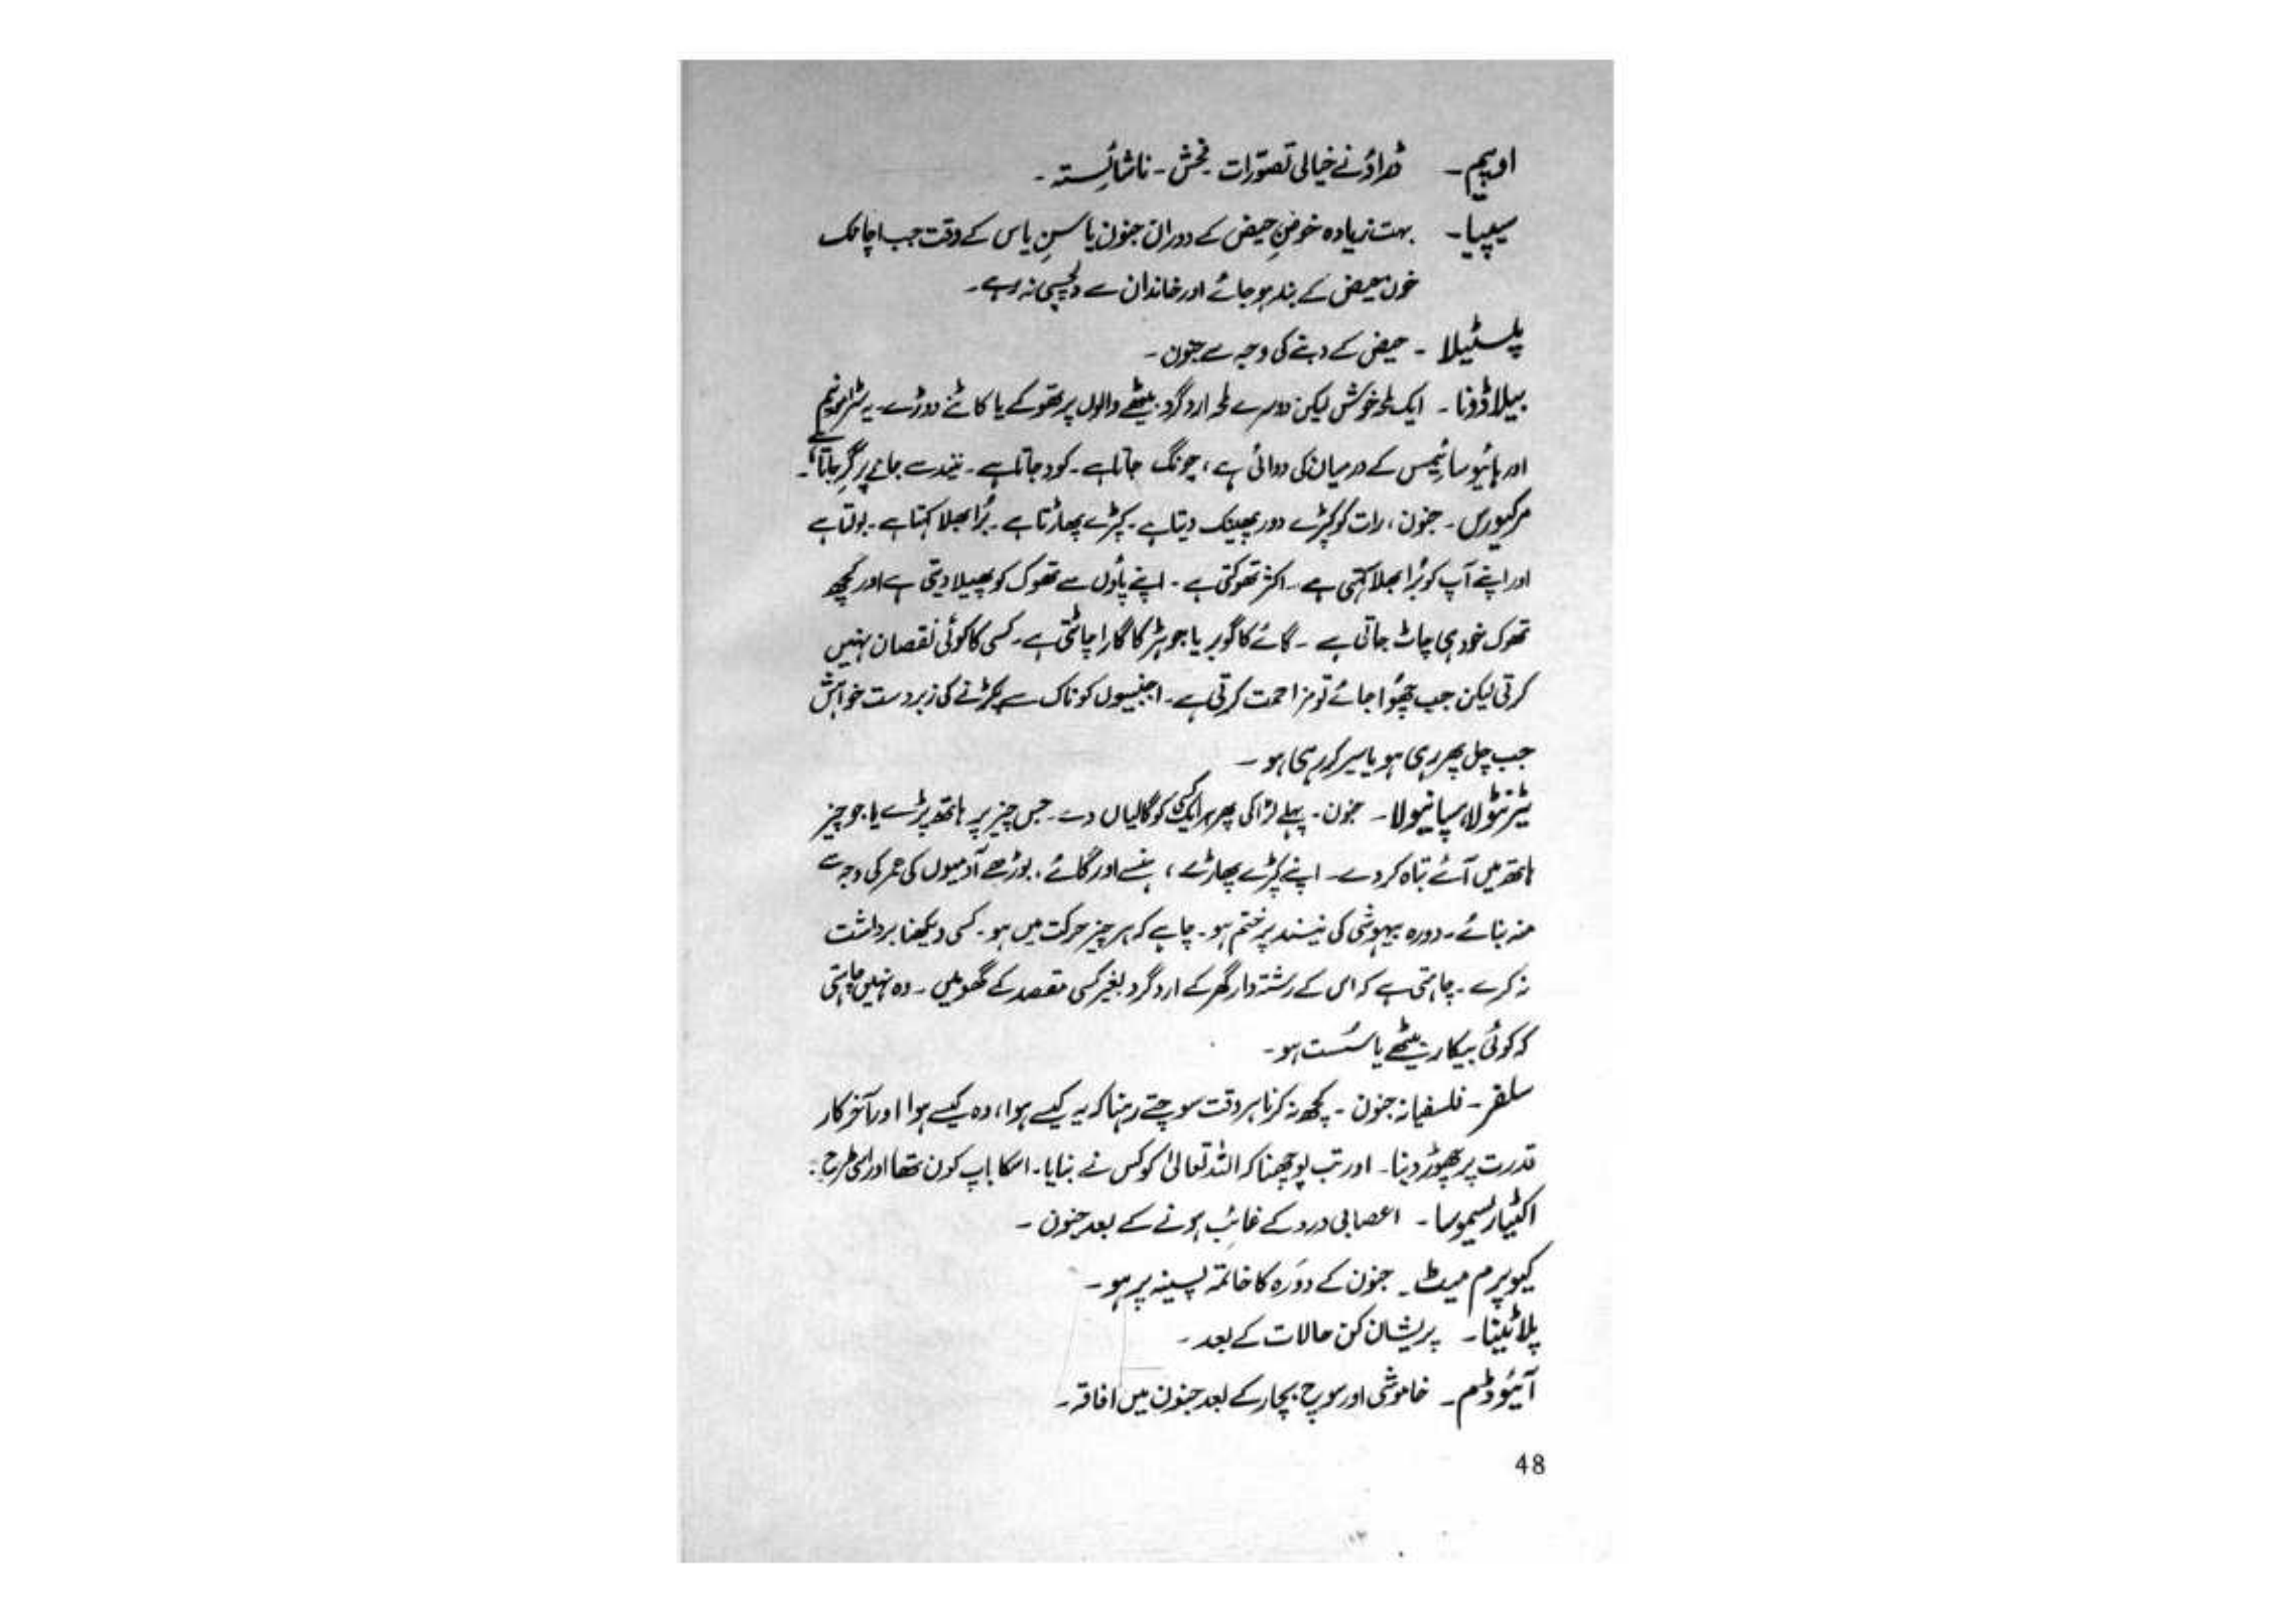 اوپیم۔ ڈراؤنے خیالی تصوّرات۔ فحش۔ ناشائستہ۔
سیپیا۔ بہت زیادہ خونِ حیض کے دوران جنون یا سنِ یاس کے وقت جب اچانک
خون حیض کے بند ہو جائے اور خاندان سے دلچسپی نہ رہے۔
پلسٹیلا۔ حیض کے دبنے کی وجہ سے جنون۔
بیلاڈونا۔ ایک لمحہ خوش لیکن دوسرے لمحہ ارد گرد بیٹھے والوں پر تھوکے یا کاٹنے دوڑے۔ یہ سٹرامونیم
اور ہائیوسائیمس کے درمیان کی دوائی ہے، چونک جاتا ہے۔ کود جاتا ہے۔ نیند سے جاگنے پر گر جاتا ہے۔
مرکیورس۔ جنون، رات کو کپڑے دور پھینک دیتا ہے۔ کپڑے پھاڑتا ہے۔ بُرا بھلا کہتا ہے۔ بولتا ہے
اور اپنے آپ کو بُرا بھلا کہتی ہے۔ اکثر تھوکتی ہے۔ اپنے پاؤں سے تھوک کو پھیلا دیتی ہے اور کچھ
تھوک خود ہی چاٹ جاتی ہے۔ گائے کا گوبر یا جوہڑ کا گارا چاٹتی ہے۔ کسی کا کوئی نقصان نہیں
کرتی لیکن جب چھُوا جائے تو مزاحمت کرتی ہے۔ اجنبیوں کو ناک سے پکڑنے کی زبردست خواہش
جب چل پھر رہی ہو یا سیر کر رہی ہو۔
ٹیرنٹولا سپانیولا۔ جنون۔ پہلے لڑاکی پھر ہر ایک کسی کو گالیاں دے۔ جس چیز پر ہاتھ پڑے یا جو چیز
ہاتھ میں آئے تباہ کر دے۔ اپنے کپڑے پھاڑے، ہنسے اور گائے۔ بوڑھے آدمیوں کی عمر کی وجہ سے
منہ بنائے۔ دورہ بیہوشی کی نیند پر ختم ہو۔ چاہے کہ ہر چیز حرکت میں ہو۔ کسی دیکھنا برداشت
نہ کرے۔ چاہتی ہے کہ اس کے رشتہ دار گھر کے ارد گرد بغیر کسی مقصد کے گھومیں۔ وہ نہیں چاہتی
کہ کوئی بیکار بیٹھے یا سُست ہو۔
سلفر۔ فلسفیانہ جنون۔ کچھ نہ کرنا ہر وقت سوچتے رہنا کہ یہ کیسے ہوا، وہ کیسے ہوا اور آخر کار
قدرت پر چھوڑ دینا۔ اور تب پوچھنا کہ اللہ تعالیٰ کو کس نے بنایا۔ اسکا باپ کون تھا اور اسی طرح۔
اکٹیا ریسیموسا۔ اعصابی درد کے غائب ہونے کے بعد جنون۔
کیوپرم میٹ۔ جنون کے دَورہ کا خاتمہ پسینہ پر ہو۔
پلاٹینا۔ پریشان کن حالات کے بعد۔
آئیوڈم۔ خاموشی اور سوچ بچار کے بعد جنون میں افاقہ۔
48